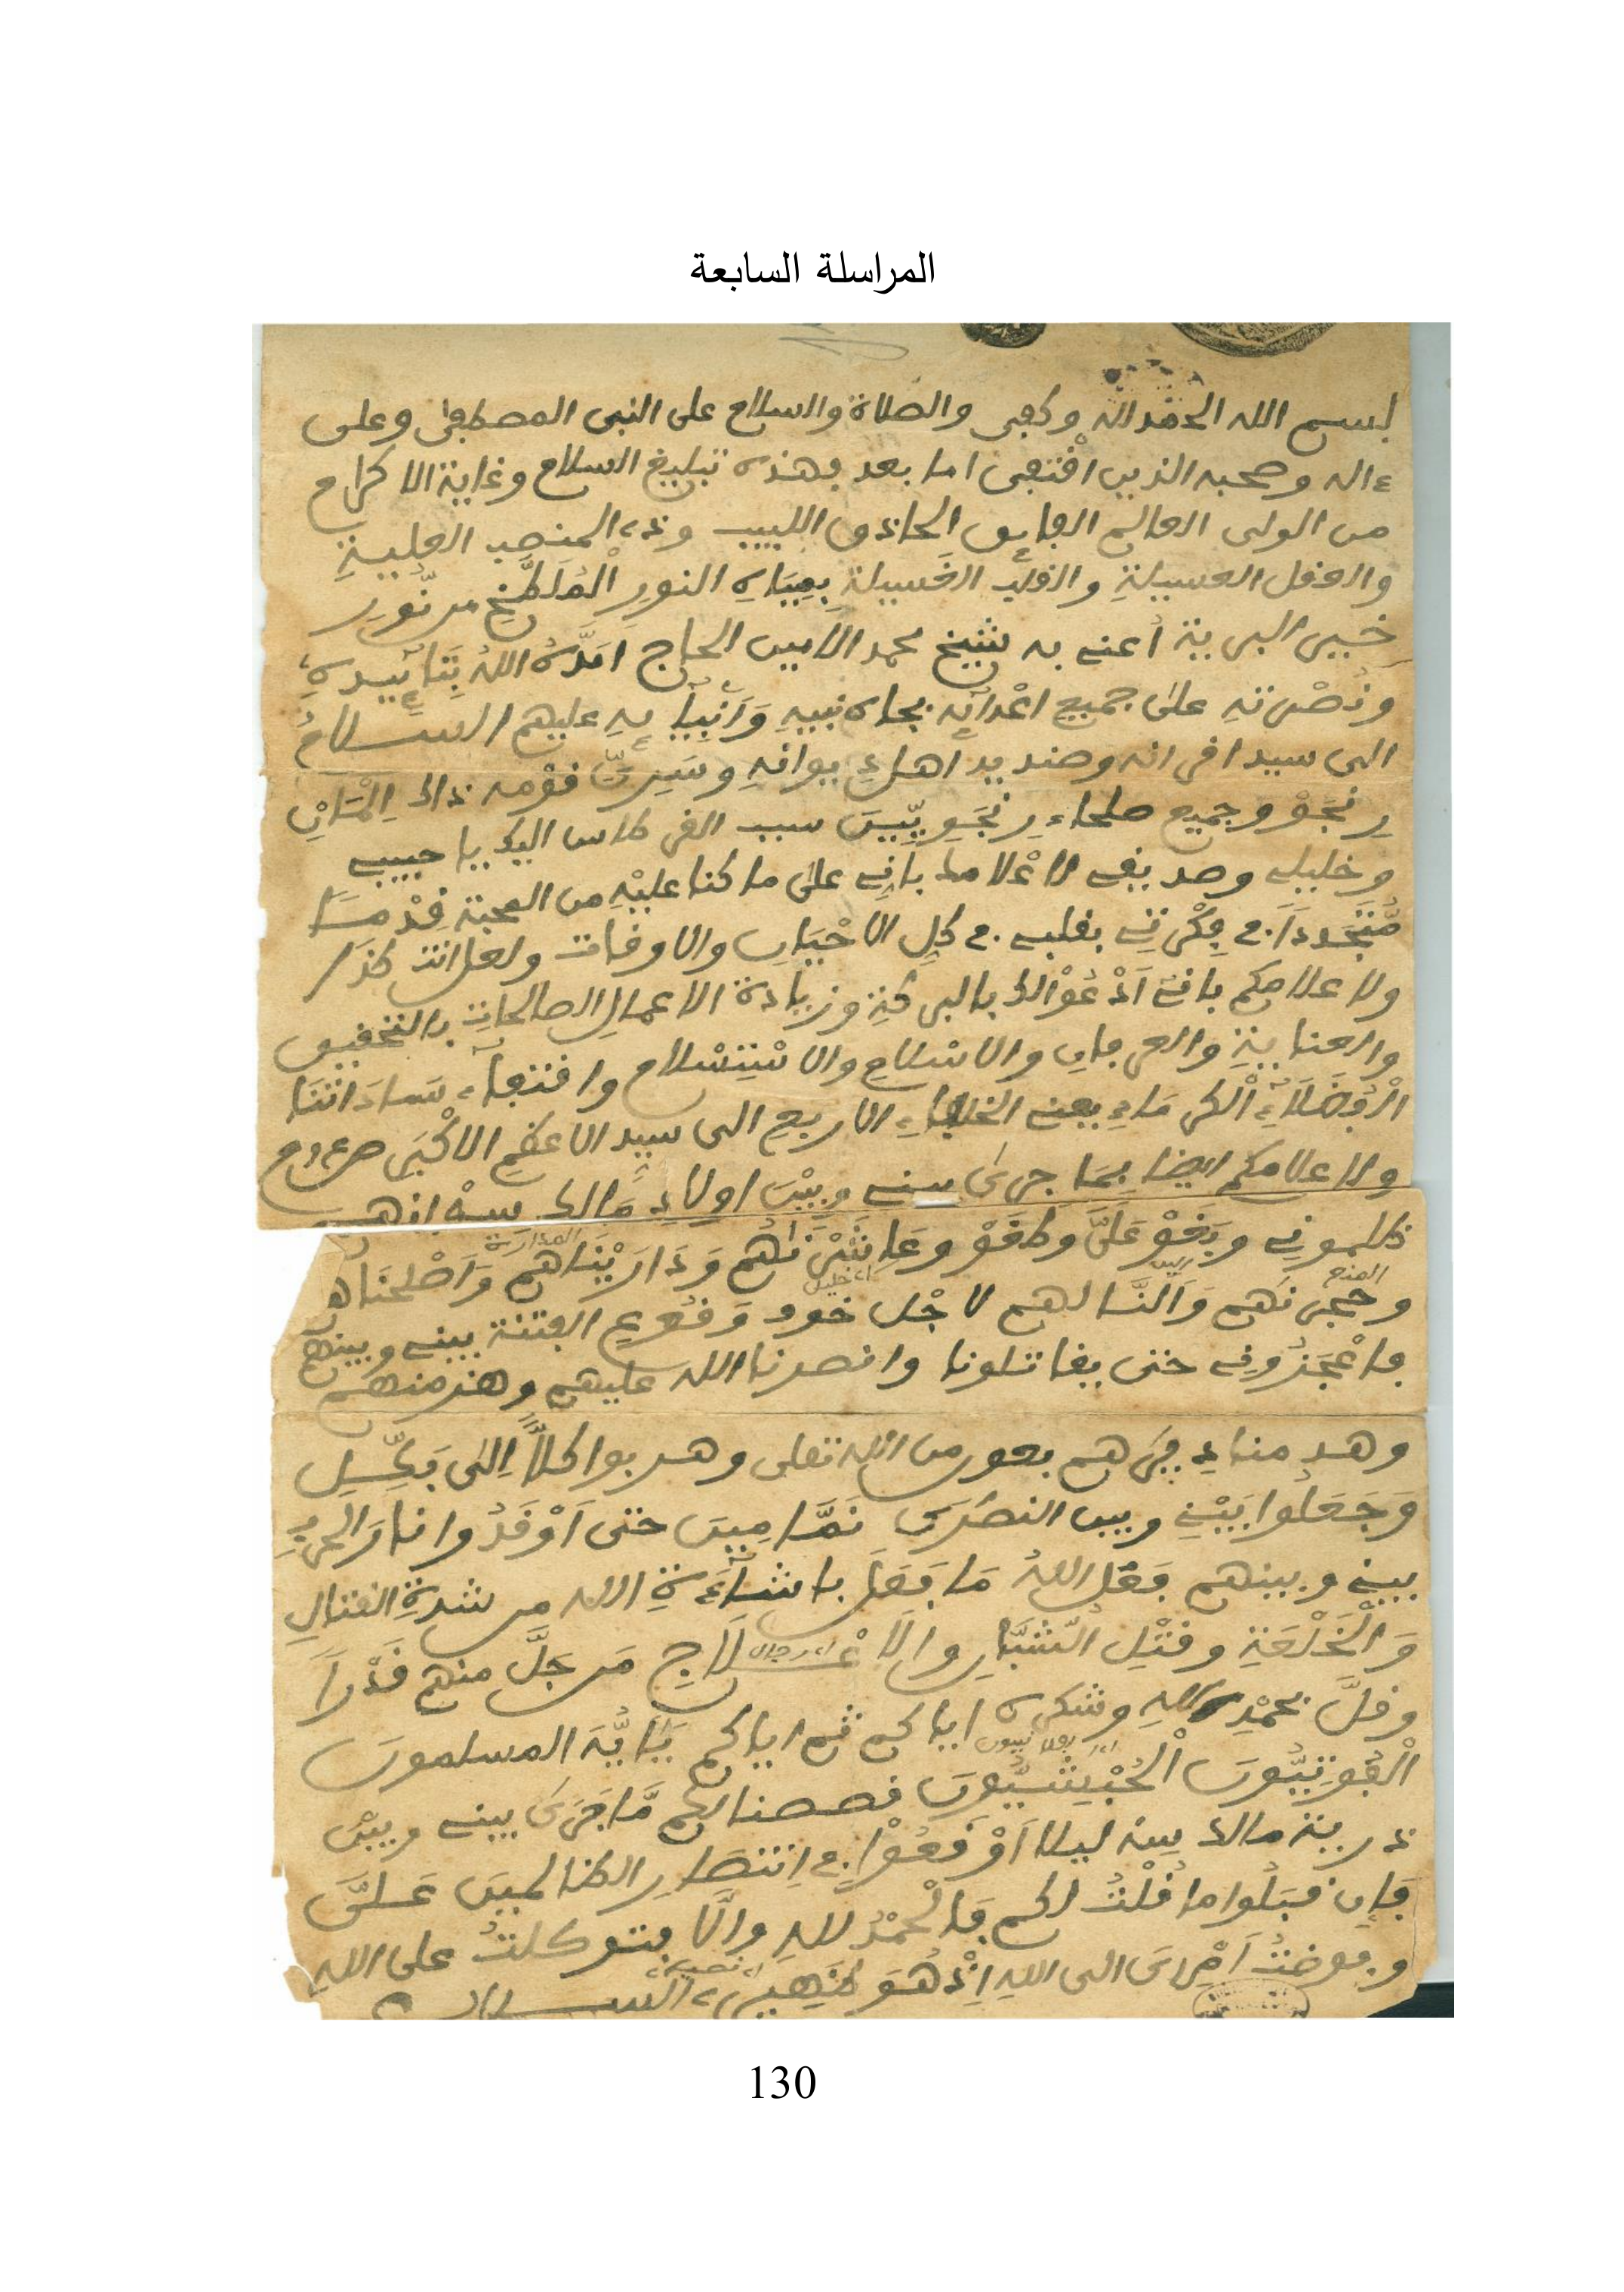 المراسلة السابعة
بسم الله الحمد لله وكفى والصلاة والسلام على النبى المصطفى وعلى
ءاله وصحبه الذين اقتفى اما بعد فهذه تبليغ السلام وغاية الاكرام
من الولى العالم الفايق الحاذق اللبيب وذى المنصب العلية
والعقل العسيلة والقلب الغسيلة بمياه النور الملطخ من نور
خيير البرية أعنى به شيخ محمد الامين الحاج امده الله بتائيده
ونصرته على جميع اعدائه بجاه نبيه وأنبيايه عليهم السلام
الى سيد اقرانه وصنديد اهل
وجميع صلحاء سبب القرطاس اليك يا حبيبى
وخليلى وصديقى لاعلامك بانى على ما كنا عليه من المحبة قدمسا
متجددا فى فكرتى بقلبى فى كل الاحيان والاوقات ولعل انت كذا
ولاعلامكم بانى أدعوالك بالبركة وزيادة الاعمال الصالحات بالتحقيق
والعناية والعرفان والاسلام والاستسلام واقتفاء ساداتنا
الفضلاء الكرماء يعنى الخلفاء الاربع الى سيد الاعظم الاكبر
ولاعلامكم ايضا بما جرى بينى وبين اولاد مالك
ظلمونى وبغو على وطغو وعاشرناهم وداريناهم واصلحناهم
المدارية
العذح
وحجرناهم والنا لهم لاجل خود وقوع الفتنة بينى وبينهم
فاعجزونى حتى يقاتلونا وانصرنا الله عليهم وهزمنهم
وهدمناء هم بعون الله تعلى وهربوا كلا الى
وجعلوا بينى وبين النصرى نمامين حتى أوقدوا نار الحرب
بينى وبينهم فعل الله ما فعل باشاءة الله من شدة القتال
والخدعة وقتل الشبان والاعلاج من جل منهم قدرا
وقل بحمد الله وشكره اياكم ثم اياكم يايه المسلمون
قصصنا لكم ما جرى بينى وبين
ذرية مالك ليلا أوقعوا فى انتصار الظالمين على
فان قبلوا ما قلت لكم فالحمد لله والا فتوكلت على الله
وفوضت أمرى الى الله اذ هو ظهيرى السلام
130